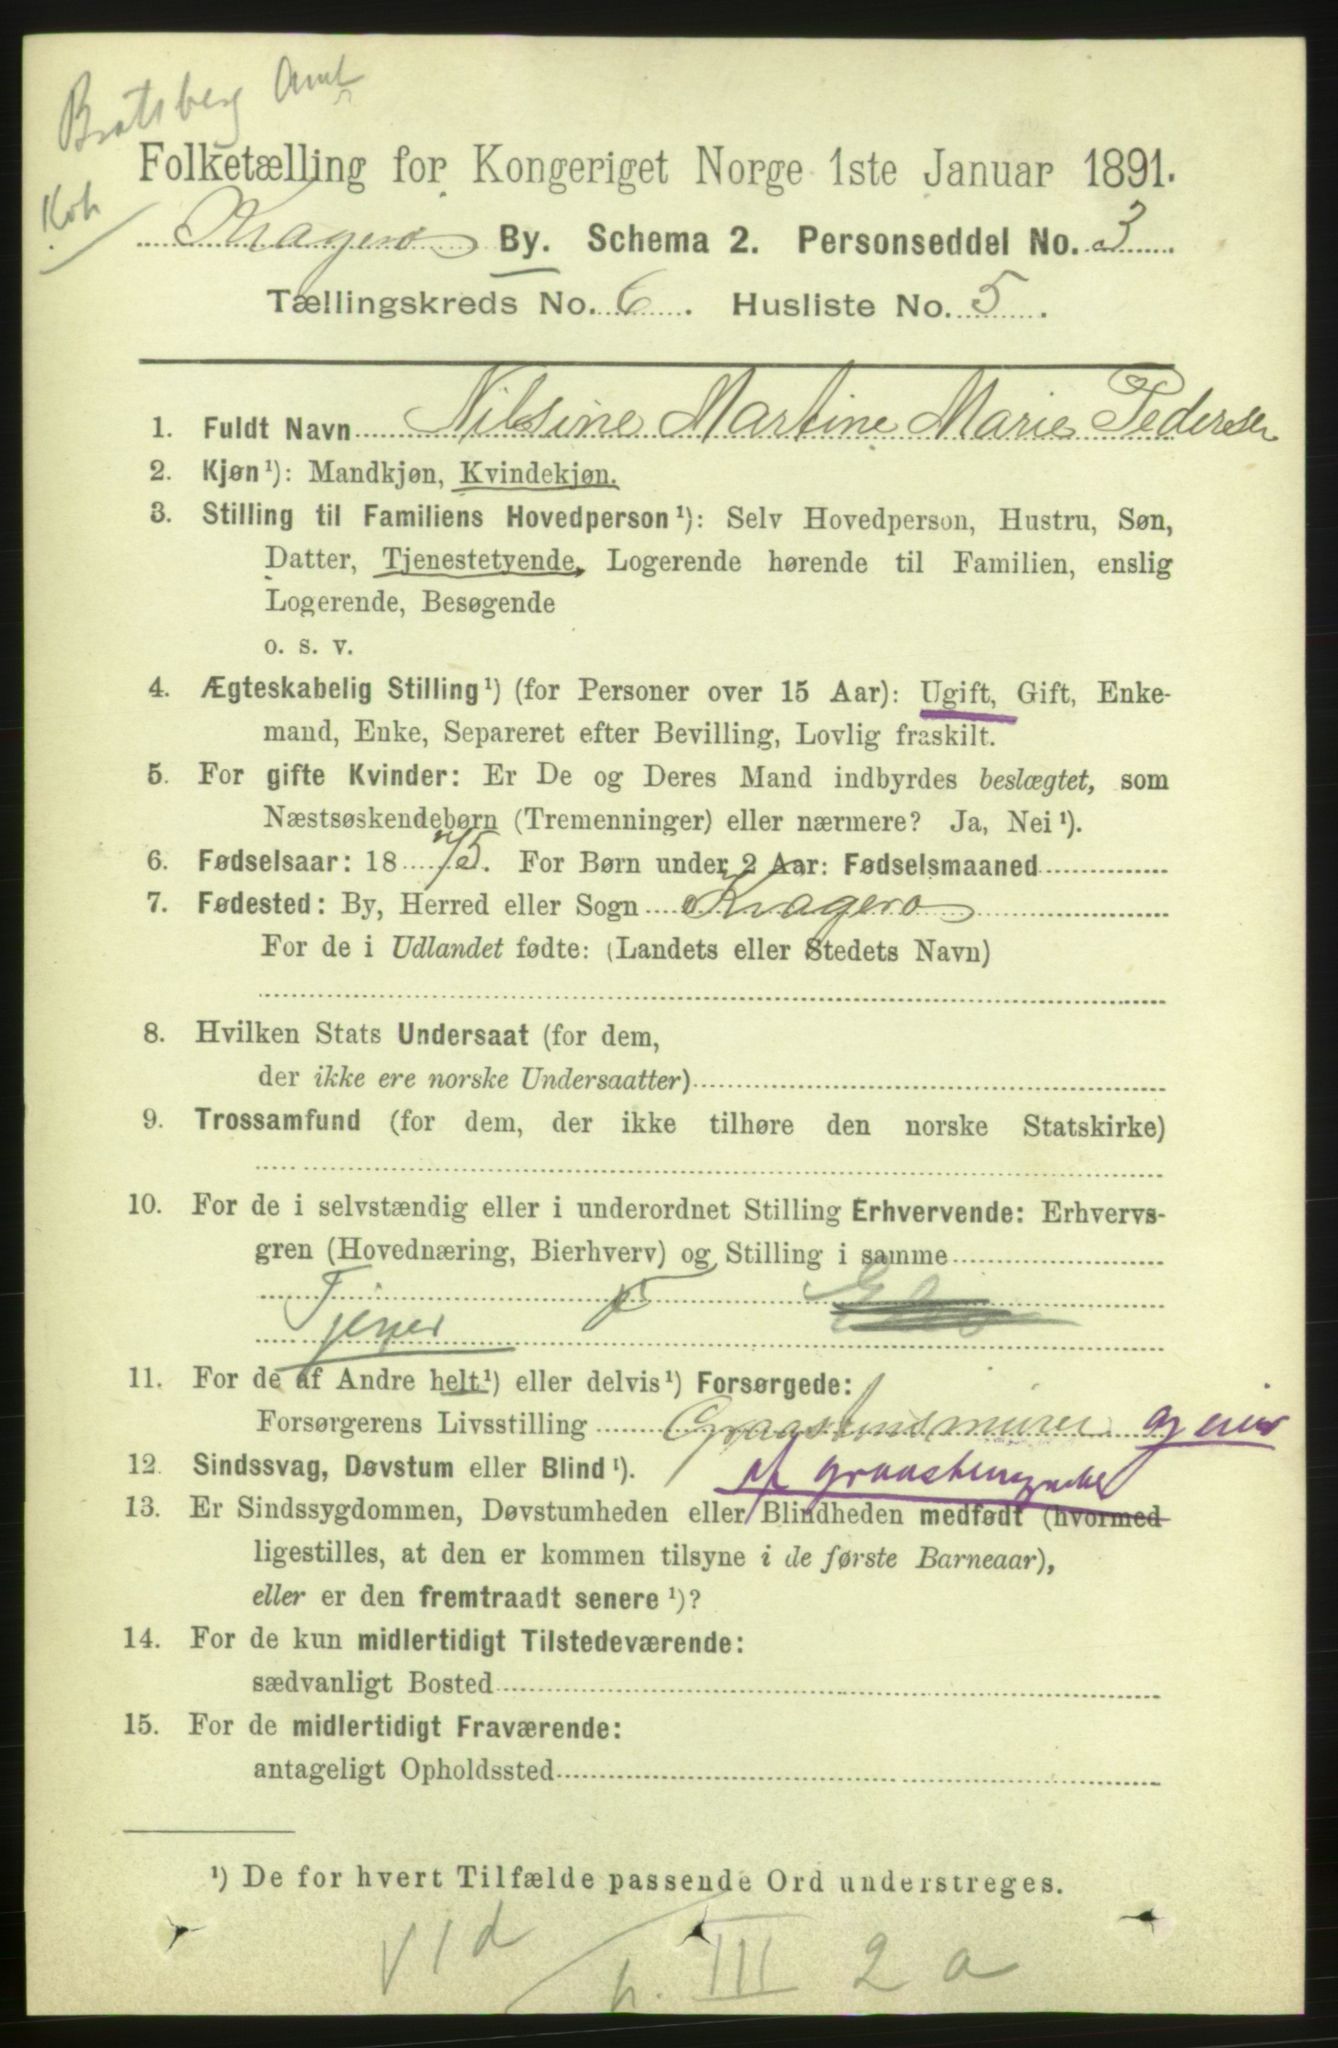 Bratsberg Amt
Folketælling for Kongeriget Norge 1ste Januar 1891.
Kragerø By. Schema 2. Personseddel No. 3
Tællingskreds No. 6. Husliste No. 5.
1. Fuldt Navn Nilsine Martine Marie Pedersen
2. Kjøn ¹): Mandkjøn, Kvindekjøn.
3. Stilling til Familiens Hovedperson ¹): Selv Hovedperson, Hustru, Søn,
Datter, Tjenestetyende, Logerende hørende til Familien, enslig
Logerende, Besøgende
o. s. v.
4. Ægteskabelig Stilling ¹) (for Personer over 15 Aar): Ugift, Gift, Enke-
mand, Enke, Separeret efter Bevilling, Lovlig fraskilt.
5. For gifte Kvinder: Er De og Deres Mand indbyrdes beslægtet, som
Næstsøskendebørn (Tremenninger) eller nærmere? Ja, Nei ¹).
6. Fødselsaar: 1875. For Børn under 2 Aar: Fødselsmaaned
7. Fødested: By, Herred eller Sogn Kragerø
For de i Udlandet fødte: (Landets eller Stedets Navn)
8. Hvilken Stats Undersaat (for dem,
der ikke ere norske Undersaatter)
9. Trossamfund (for dem, der ikke tilhøre den norske Statskirke)
10. For de i selvstændig eller i underordnet Stilling Erhvervende: Erhvervs-
gren (Hovednæring, Bierhverv) og Stilling i samme
Tjener
11. For de af Andre helt ¹) eller delvis ¹) Forsørgede:
Forsørgerens Livsstilling Graastensmurer og eier
af graasten
12. Sindssvag, Døvstum eller Blind ¹).
13. Er Sindssygdommen, Døvstumheden eller Blindheden medfødt (hvormed
ligestilles, at den er kommen tilsyne i de første Barneaar),
eller er den fremtraadt senere ¹)?
14. For de kun midlertidigt Tilstedeværende:
sædvanligt Bosted
15. For de midlertidigt Fraværende:
antageligt Opholdssted
¹) De for hvert Tilfælde passende Ord understreges.
III 2 a